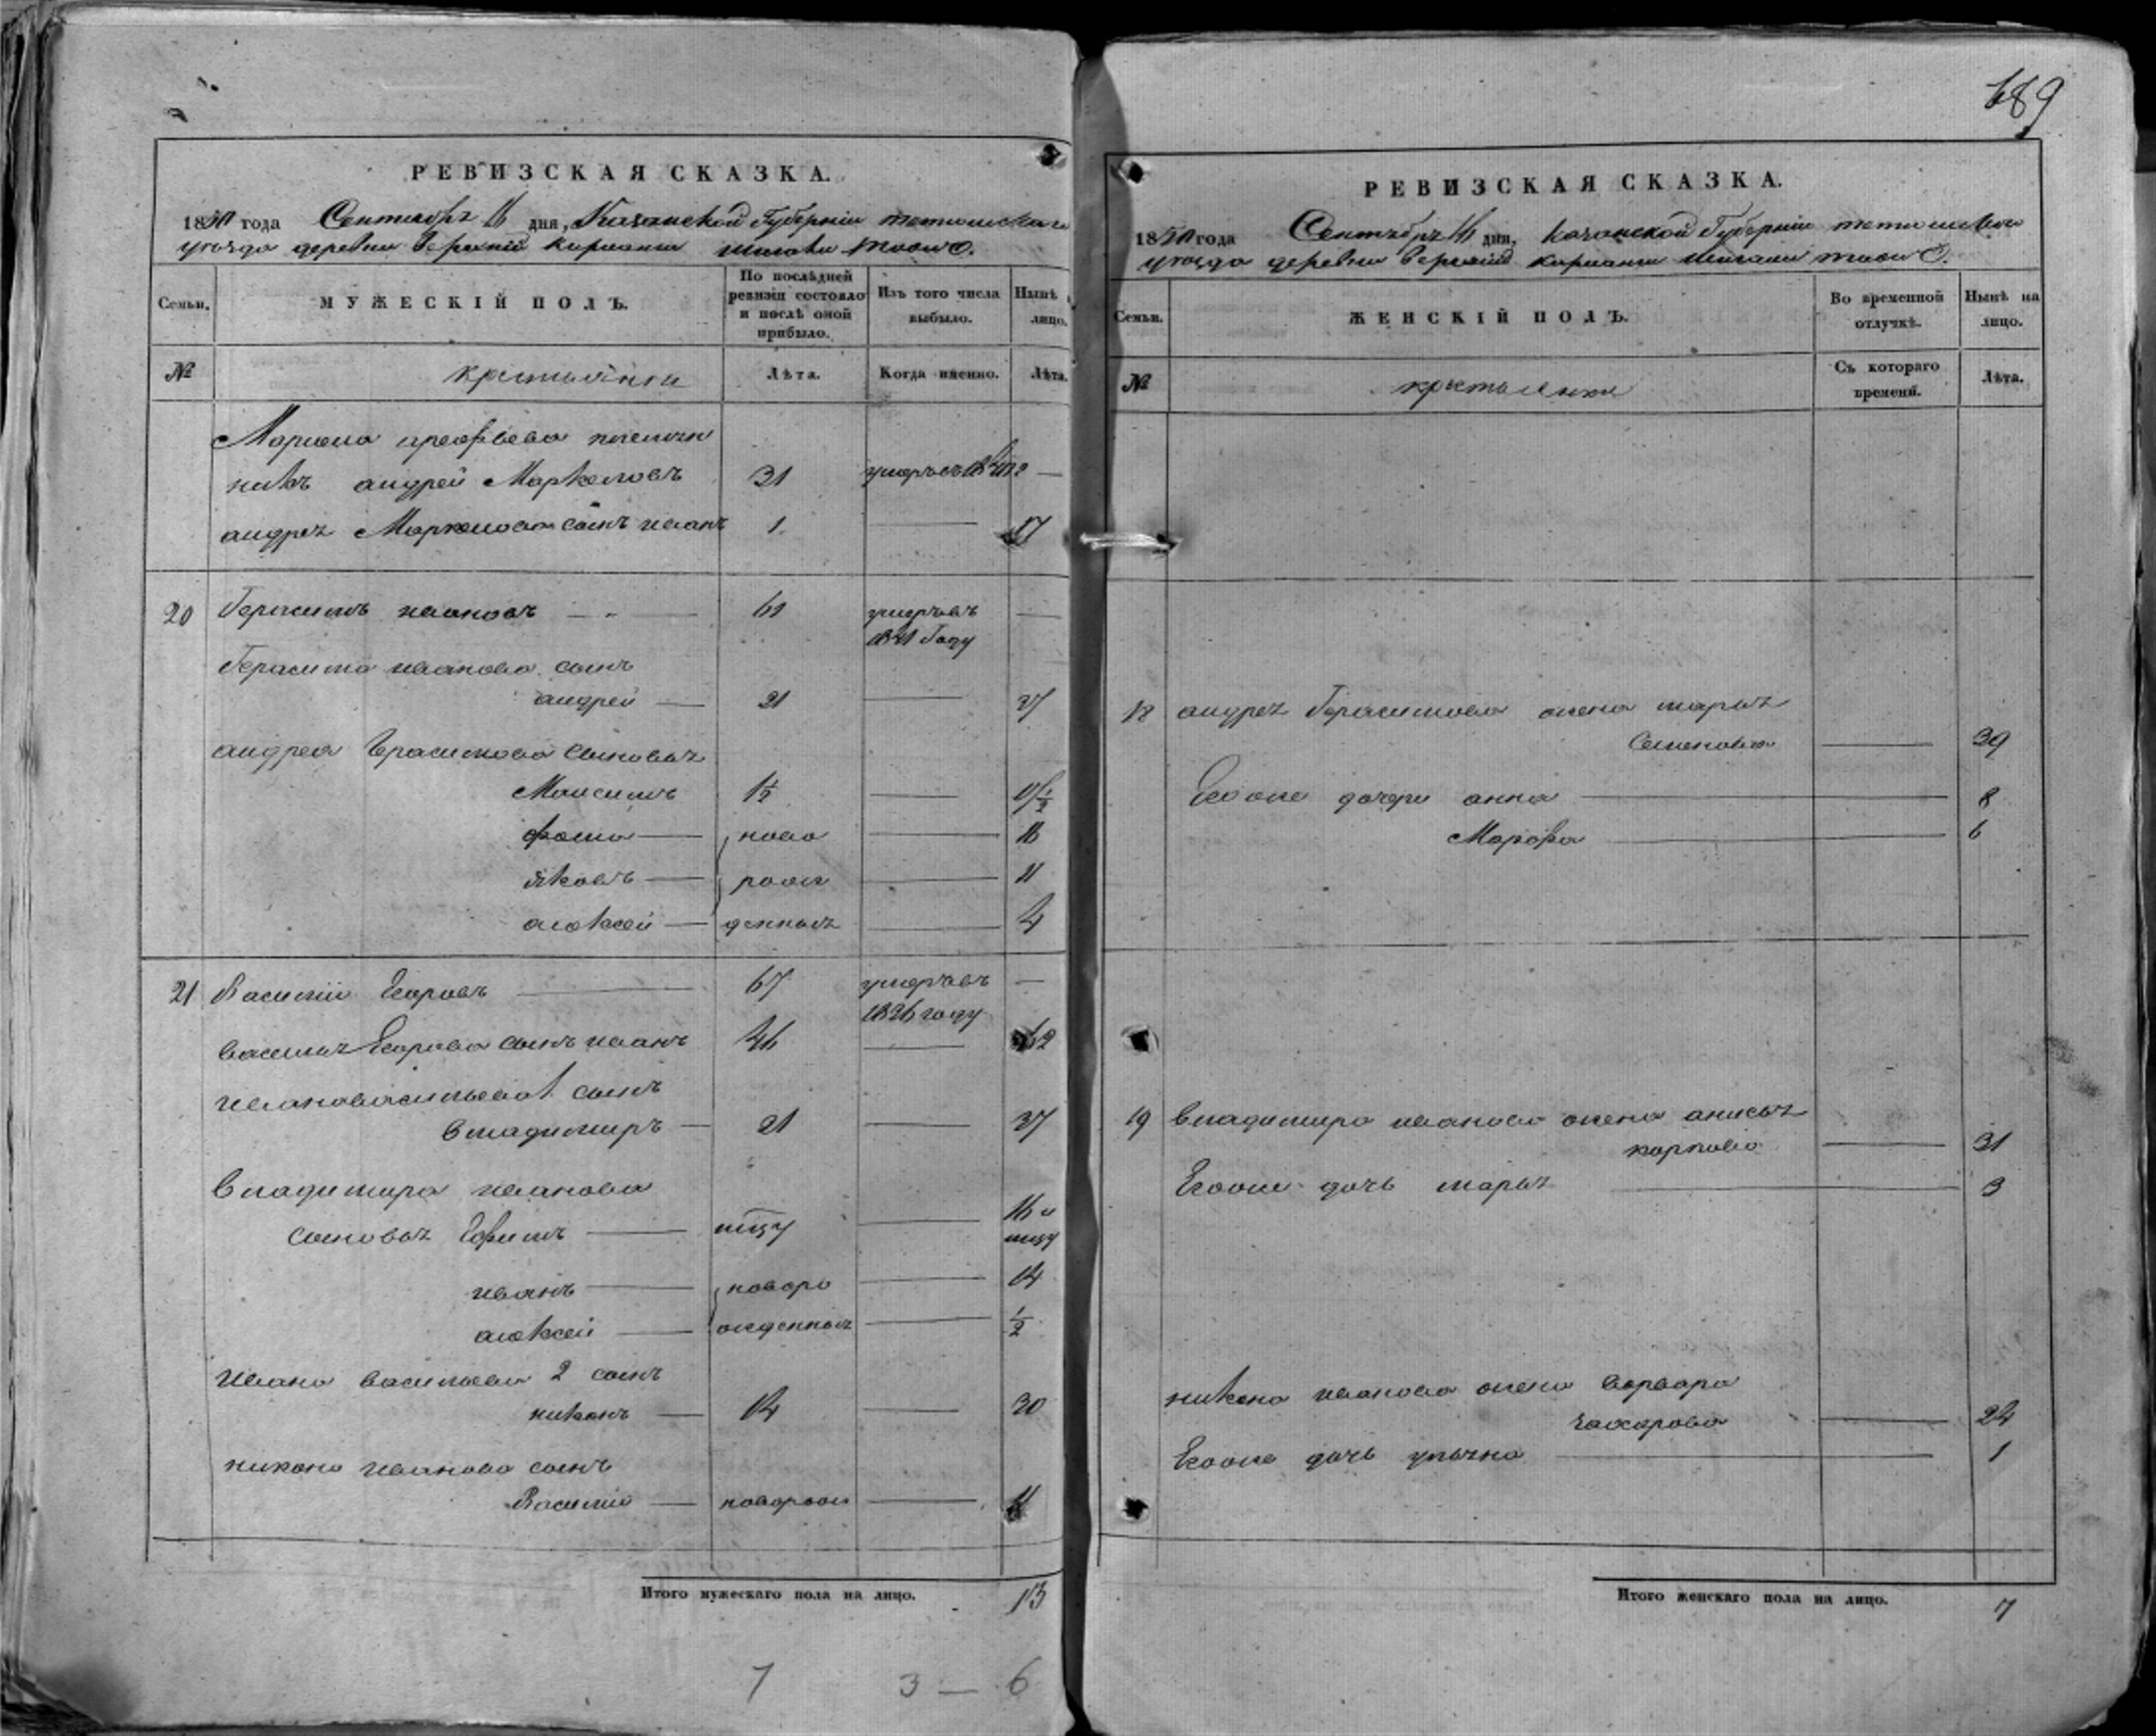 689
РЕВИЗСКАЯ СКАЗКА.
1850 года Сентября 16 дня, Казанской Губерніи тетюшскаго
уезда деревни верхній
МУЖЕСКІЙ ПОЛЪ.
Семьи.
По послѣдней ревизіи состояло и послѣ оной прибыло.
Изъ того числа выбыло.
Нынѣ лицо.
№
крестьянки
Лѣта.
Когда именно.
Лѣта.
племян
никъ андрей Маркеловъ 31 умеръ въ —
андрея Маркелова сынъ иванъ 1. — 17
20 Герасимъ ивановъ — 61 умеръ въ —
1841 Году
Герасима иванова сынъ
андрей — 21 — 37
андрея Герасимова сыновья
Максимъ 1½ — 17½
фома — ново — 16
яковъ — рож — 11
алексей — денныя — 4
21 Василий Егоровъ — 67 умеръ въ —
1836 году
василья Егорова сынъ иванъ 46 — 62
ивана васильева 1 сынъ
владимиръ — 21 — 37
владимира иванова
сыновья Ефимъ — мцу — 16 и
мцу
иванъ — новоро — 14
алексей — жденныя — ½
Ивана васильева 2 сынъ
никонъ — 14 — 30
никона иванова сынъ
Василий —новорож — 11
Итого мужескаго пола на лицо. 13
7 3 — 6
РЕВИЗСКАЯ СКАЗКА.
1850 года Сентября 16 дня, казанской Губерніи тетюшскаго
уезда деревни верхній
Семьи.
ЖЕНСКІЙ ПОЛЪ.
Во временной отлучкѣ.
Нынѣ на лицо.
№
крестьянки
Съ котораго времени.
Лѣта.
18 андрея Герасимова жена марья
Семенова — 39
Ево же дочери анна — 8
Марфа — 6
19 владимира иванова жена анисья
карпова — 31
Ево же дочь марья — 3
никона иванова жена варвара
захарова — 24
Ево же дочь ульяна — 1
Итого женскаго пола на лицо. 7